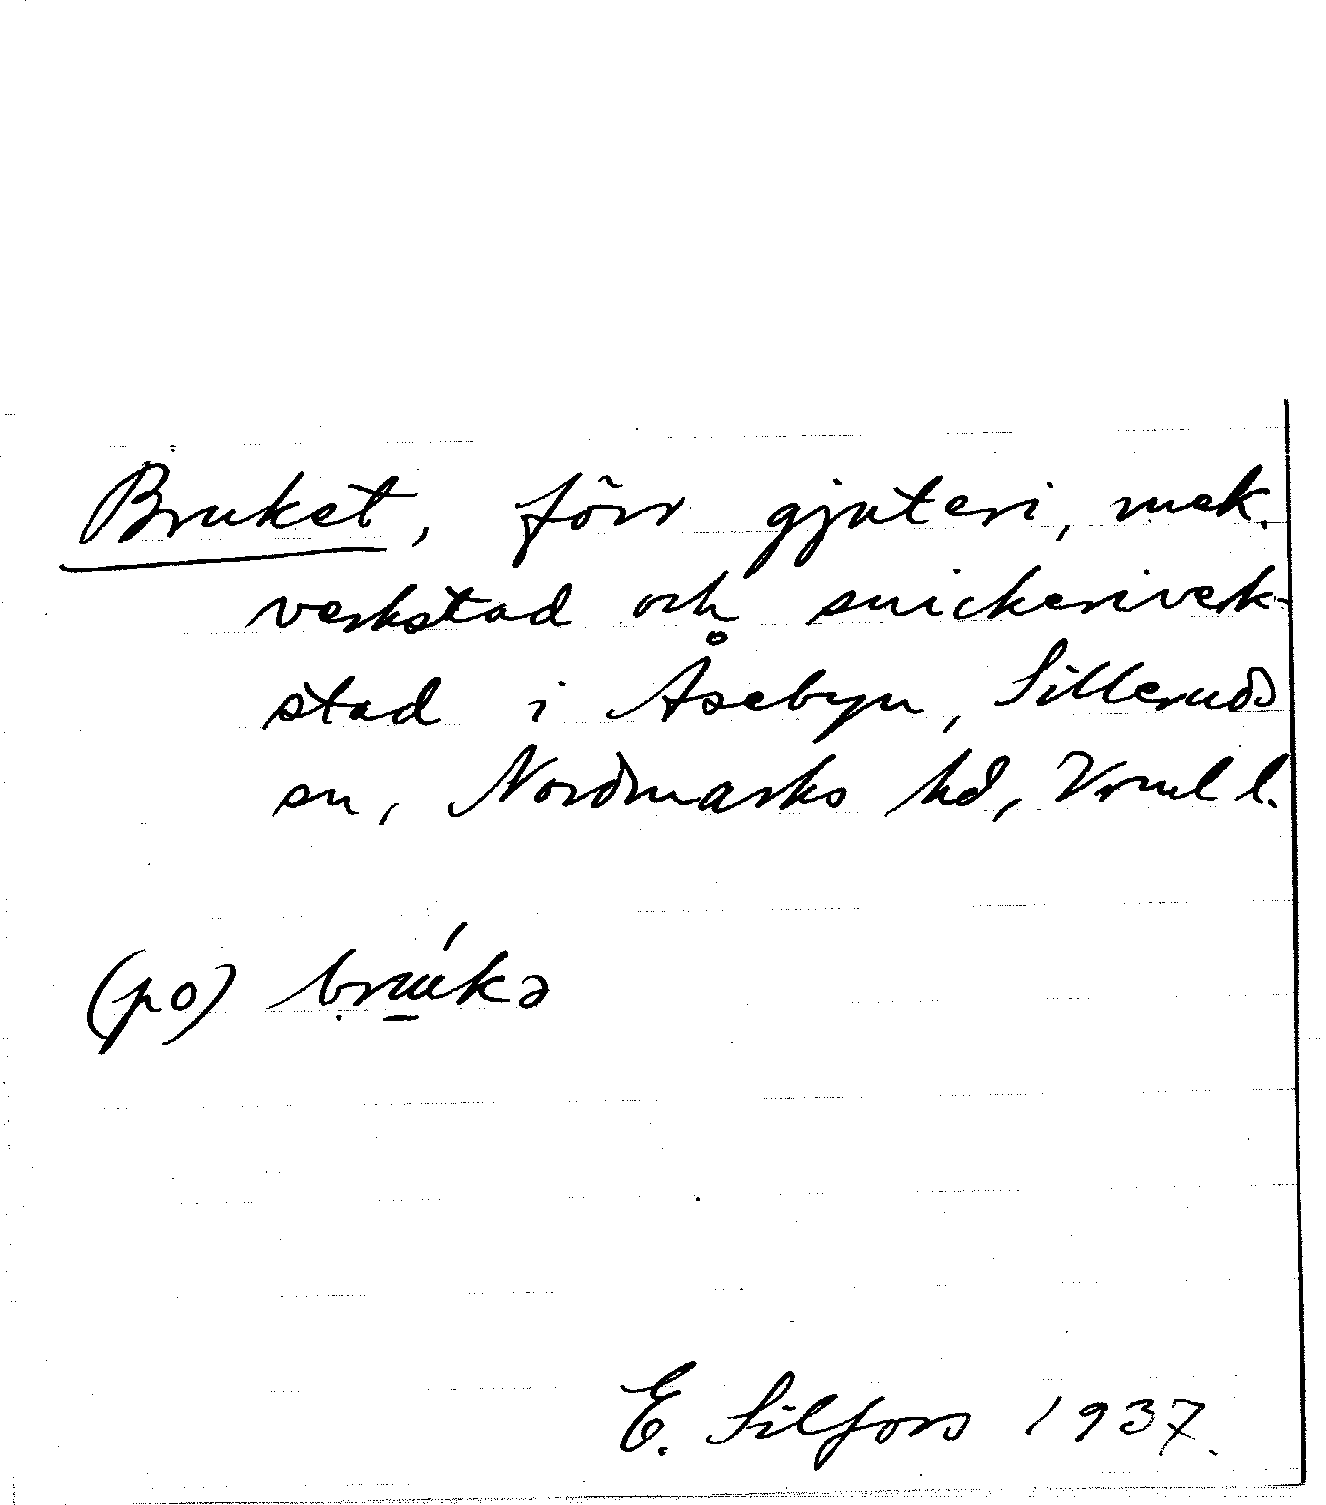 Bruket, förr gjuteri, mek.
verkstad och snickeriverk-
stad i Åsebyn, Silleruds
sn, Nordmarks hd, Vrml l.
(po) brúkə
E. Silfors 1937.